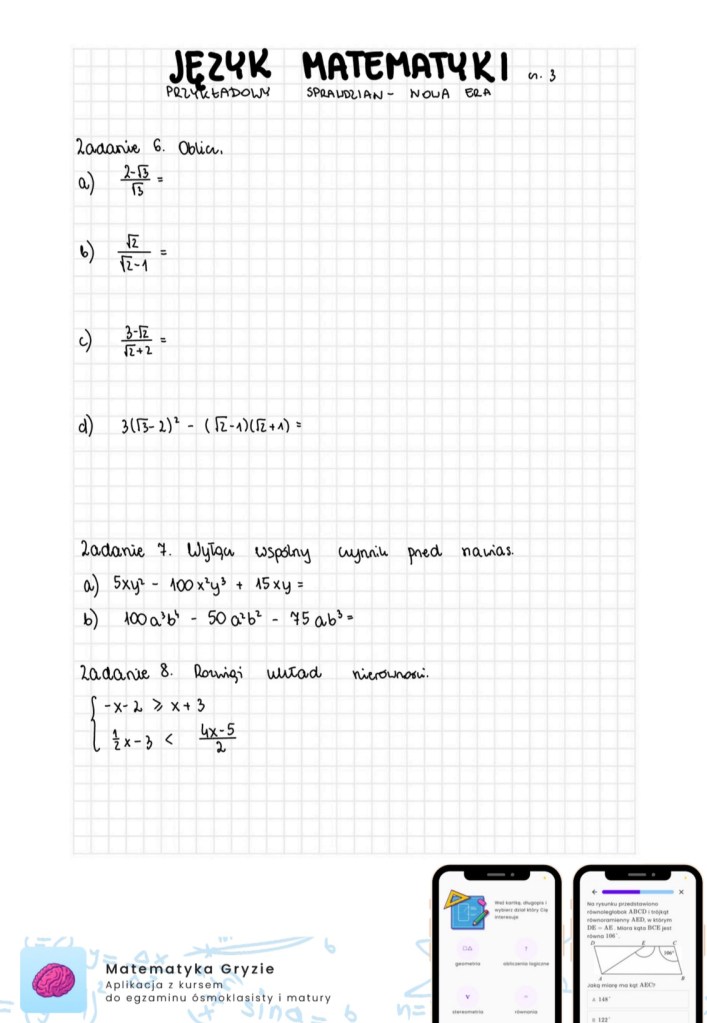 JĘZYK MATEMATYKI cz. 3
PRZYKŁADOWY SPRAWDZIAN - NOWA ERA
Zadanie 6. Oblicz.
a) \frac{2-√3}{√3} =
b) \frac{√2}{√2-1} =
c) \frac{3-√2}{√2+2} =
d) 3(√3-2)² - (√2-1)(√2+1) =
Zadanie 7. Wyłącz wspólny czynnik przed nawias.
a) 5xy² - 100x²y³ + 15xy =
b) 100a³b⁴ - 50a²b² - 75ab³ =
Zadanie 8. Rozwiąż układ nierówności.
-x-2 ⩾ x+3
\frac{1}{2}x-3 < \frac{4x-5}{2}
Matematyka Gryzie
Aplikacja z kursem
do egzaminu ósmoklasisty i matury
Weź kartkę, długopis i
wybierz dział który Cię
interesuje
geometria
obliczenia logiczne
stereometria
równania
Na rysunku przedstawiono
równoległobok ABCD i trójkąt
równoramienny AED, w którym
DE = AE. Miara kąta BCE jest
równa 106°.
D E C
106°
A B
Jaką miarę ma kąt AEC?
A 148°
B 122°